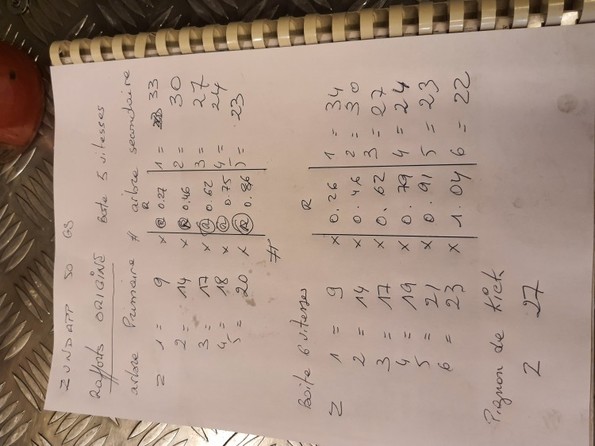 ZUNDAPP 50 GS
Rapports ORIGINE Boite 5 vitesses
arbre Primaire # arbre secondaire
Z R
1 = 9 x 0.27 1 = 33
2 = 14 x 0.46 2 = 30
3 = 17 x 0.62 3 = 27
4 = 18 x 0.75 4 = 24
5 = 20 x 0.86 5 = 23
#
Boite 6 vitesses
Z R
1 = 9 x 0.26 1 = 34
2 = 14 x 0.46 2 = 30
3 = 17 x 0.62 3 = 27
4 = 19 x 0.79 4 = 24
5 = 21 x 0.91 5 = 23
6 = 23 x 1.04 6 = 22
Pignon de Kick
Z 27